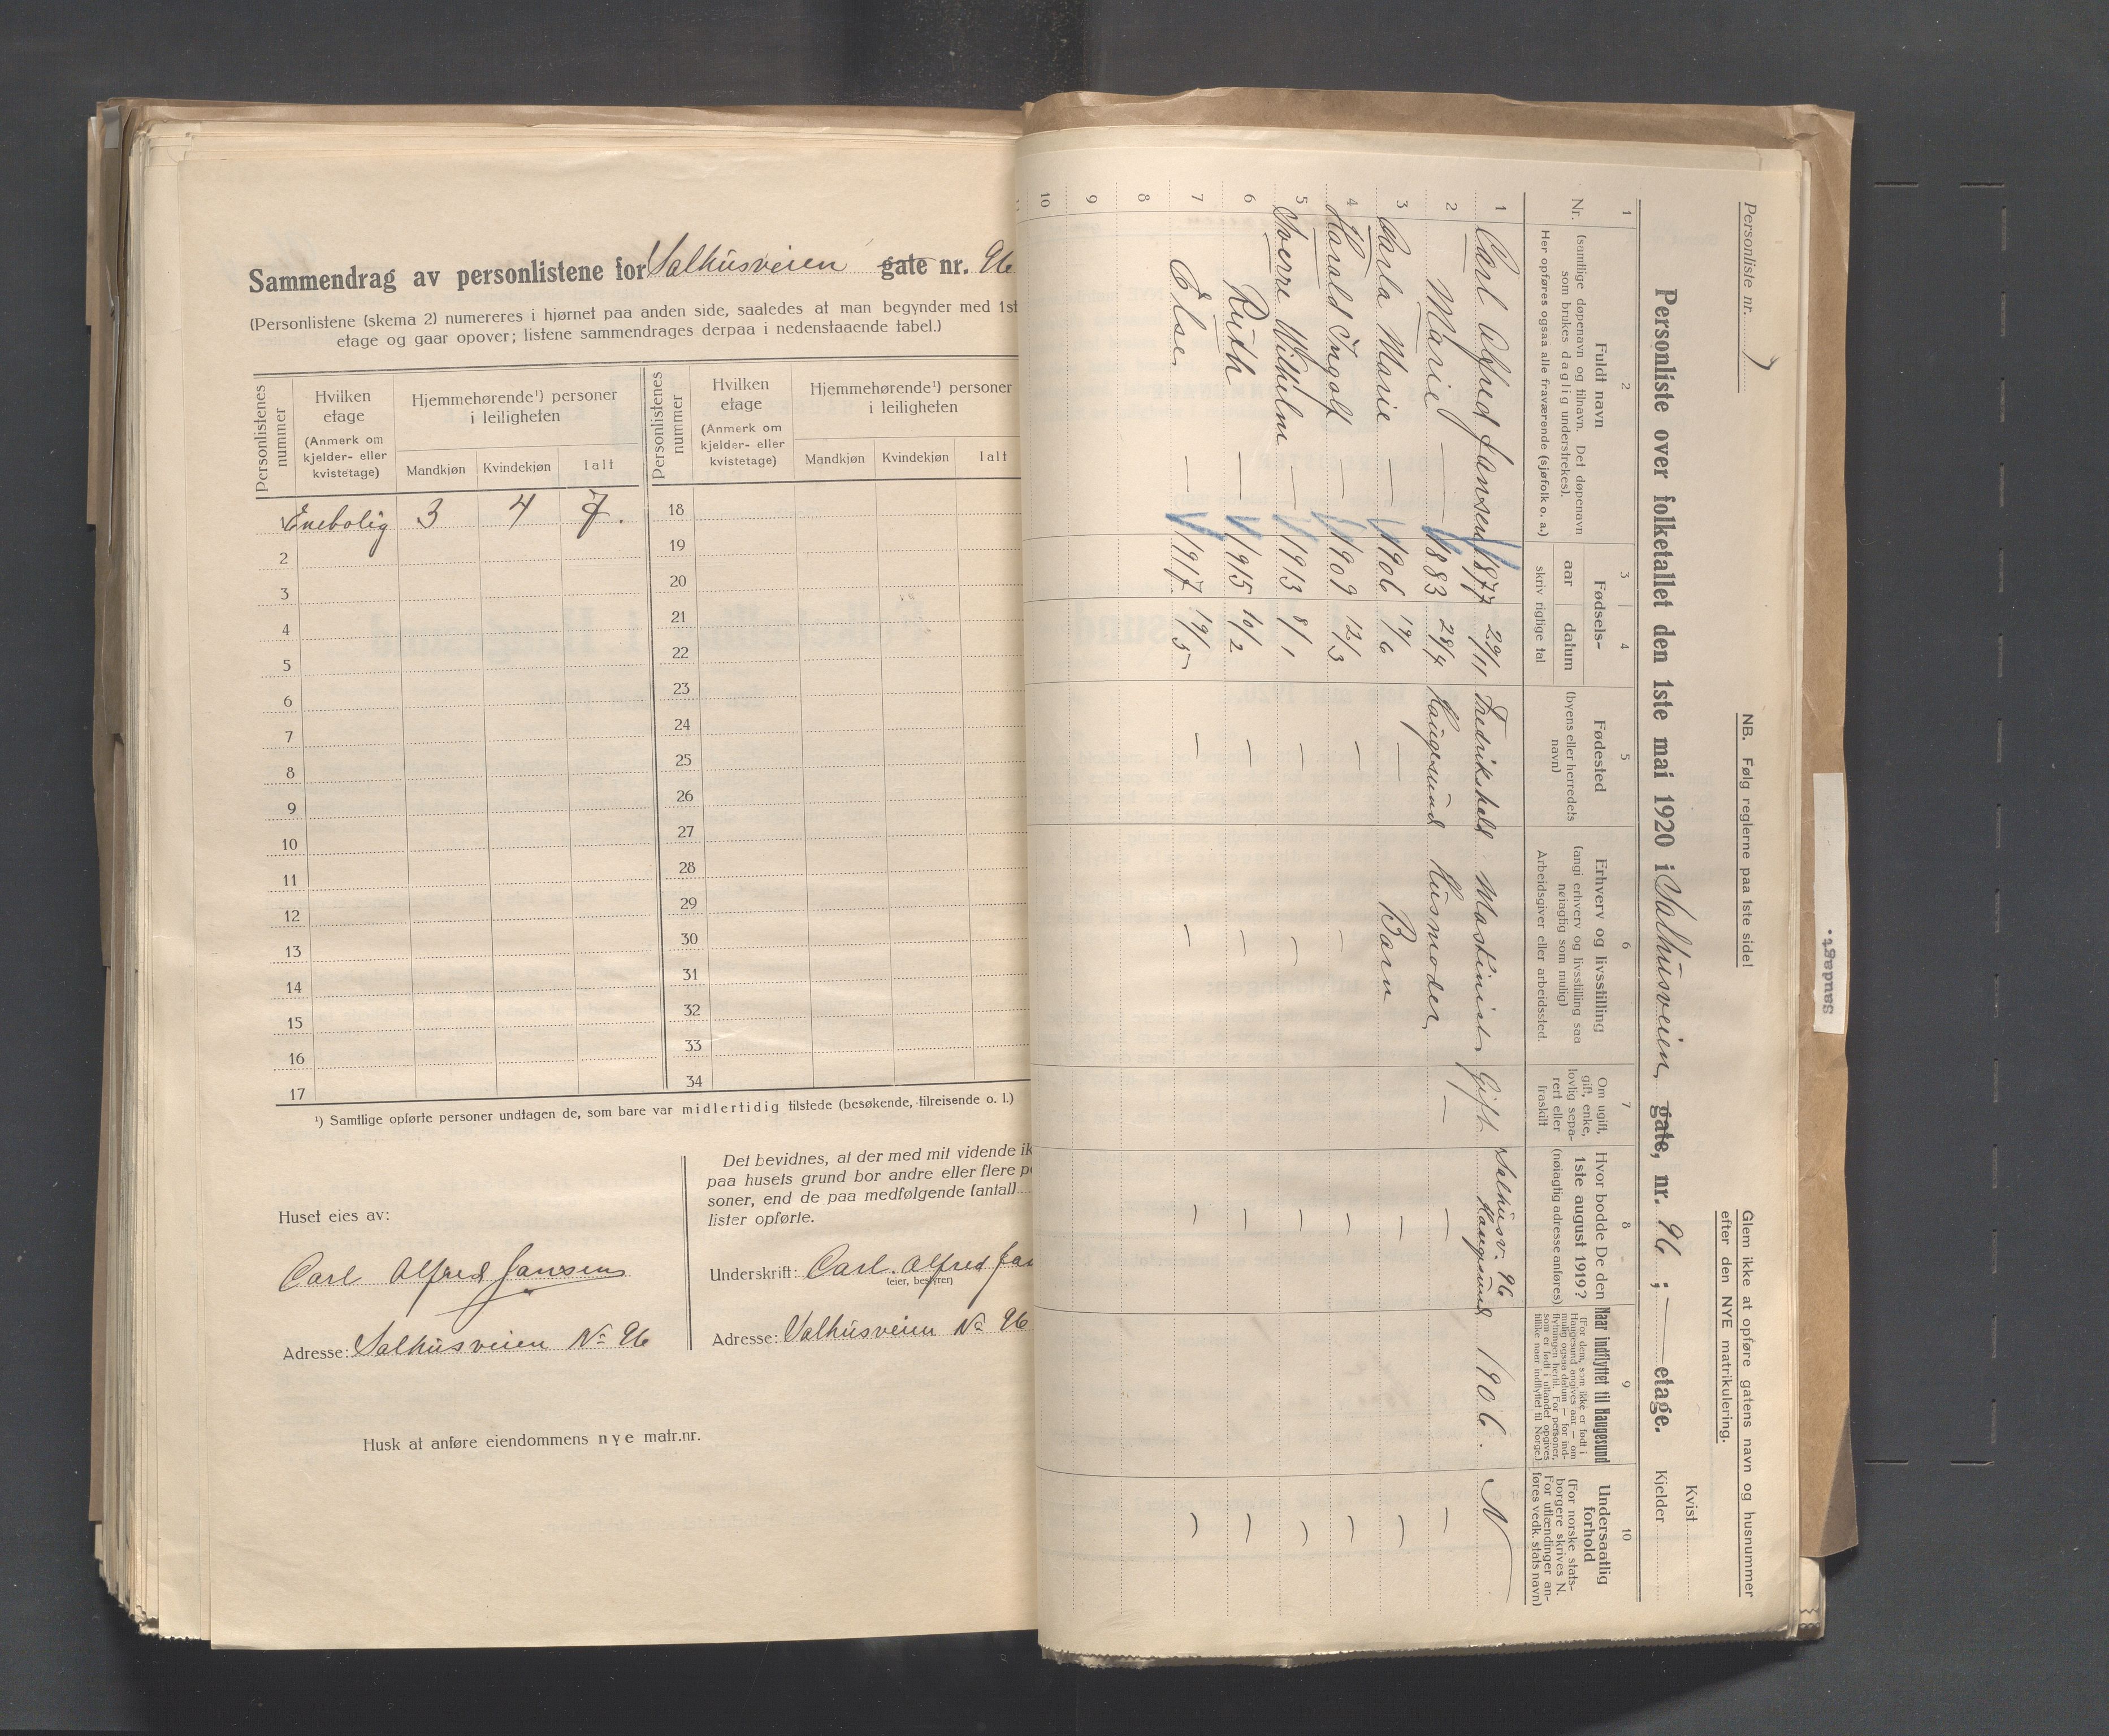 Sammendrag av personlistene for Salhusveien gate nr. 96
(Personlistene (skema 2) numereres i hjørnet paa anden side, saaledes at man begynder med 1ste
etage og gaar opover; listene sammendrages derpaa i nedenstaaende tabel.)
Personlistenes nummer
Hvilken etage (Anmerk om kjelder- eller kvistetage)
Hjemmehørende¹) personer i leiligheten
Mandkjøn Kvindekjøn Ialt
Personlistenes nummer
Hvilken etage (Anmerk om kjelder- eller kvistetage)
Hjemmehørende¹) personer i leiligheten
Mandkjøn Kvindekjøn Ialt
1 Enebolig 3 4 7. 18
2 19
3 20
4 21
5 22
6 23
7 24
8 25
9 26
10 27
11 28
12 29
13 30
14 31
15 32
16 33
17 34
¹) Samtlige opførte personer undtagen de, som bare var midlertidig tilstede (besøkende, tilreisende o. l.)
Huset eies av:
Carl Alfred Jansen
Adresse: Salhusveien No 96
Det bevidnes, at der med mit vidende ik
paa husets grund bor andre eller flere pe
soner, end de paa medfølgende (antal)
lister opførte.
Underskrift: Carl. Alfred Jan
(eier, bestyrer)
Adresse: Salhusveien No 96
Husk at anføre eiendommens nye matr.nr.
Personliste nr. 1
NB. Følg reglerne paa 1ste side!
Glem ikke at opføre gatens navn og husnummer
efter den NYE matrikulering.
Kvist
Personliste over folketallet den 1ste mai 1920 i Salhusveien gate, nr. 96 ; — etage. Kjelder
1 2 3 4 5 6 7 8 9 10
Nr.
Fuldt navn
(samtlige døpenavn og tilnavn. Det døpenavn
som brukes daglig understrekes).
Her opføres ogsaa alle fraværende (sjøfolk o. a.)
Fødsels-
aar datum
skriv rigtige tal
Fødested
(byens eller herredets
navn)
Erhverv og livsstilling
(angi erhverv og livsstilling saa
nøiagtig som mulig)
Arbeidsgiver eller arbeidssted.
Om ugift,
gift, enke,
lovlig sepa-
rert eller
fraskilt
Hvor bodde De den
1ste august 1919?
(nøiagtig adresse anføres)
Naar indflyttet til Haugesund
(For dem, som ikke er født i
Haugesund angives aar — om
mulig ogsaa datum — for ind-
flytningen hertil. For personer,
som er født i utlandet opgives
tillike naar indflyttet til Norge.)
Undersaatlig
forhold
(For norske stats-
borgere skrives N.
For utlændinger an-
føres vedk. stats navn)
1 Carl Alfred Jansen 1877 29/11 Fredrikshald Maskinist Gift Salhusv. 96 Haugesund 1906. N
2 Marie — 1883 28/4 Haugesund Husmoder — — —
3 Carla Marie — 1906 19/6 — Barn — —
4 Harald Ingolf — 1909 12/3 — — — —
5 Sverre Wilhelm — 1913 8/1 — — — —
6 Ruth — 1915 10/2 — — — —
7 Else — 1917 19/5 — — — —
8
9
10
Sandagt.